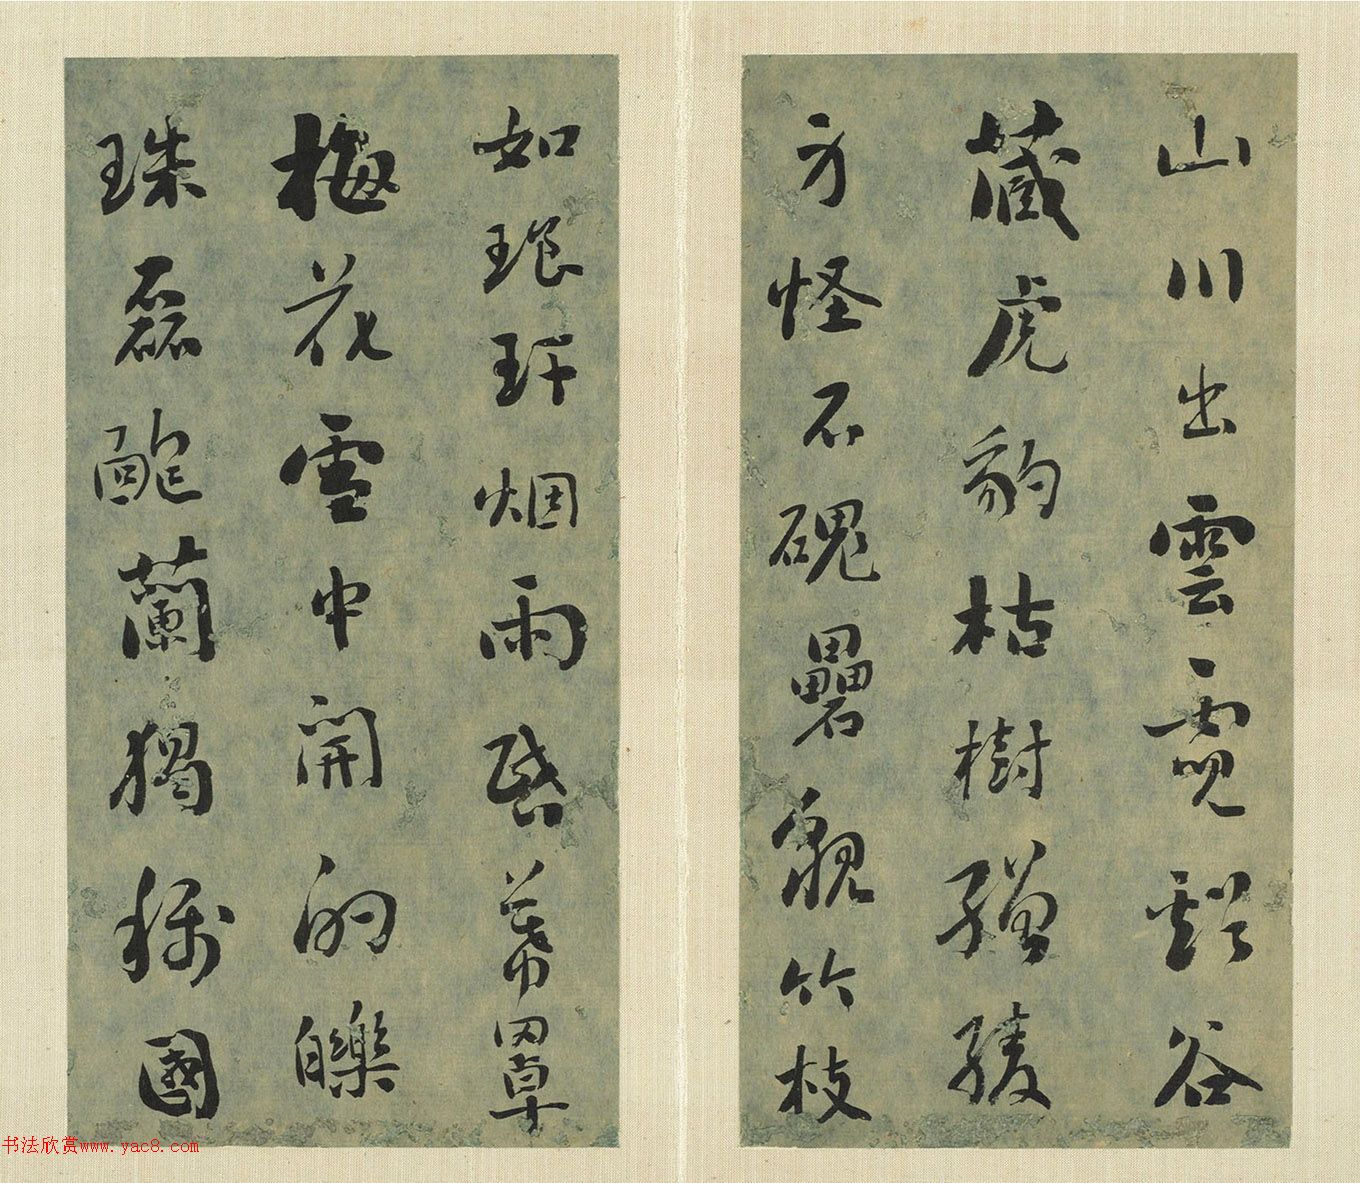 山川出雲霓谿谷
藏虎豹枯樹繒綾
方怪石磈礨貌竹枝
如琅玕烟雨昏幕罩
梅花雪中開的皪
珠磊蘭獨稱國
书法欣赏www.yac8.com